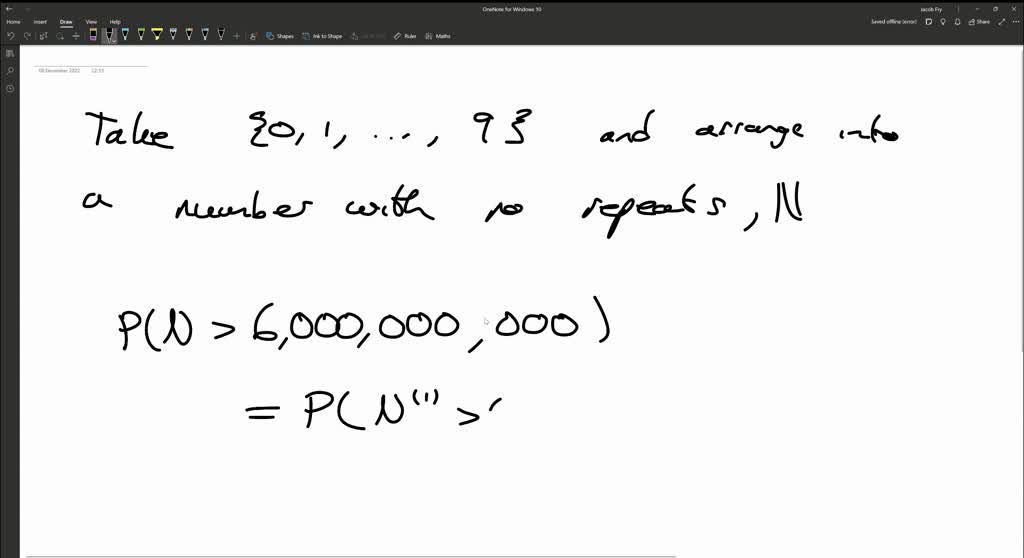 OneNote for Windows 10
Jacob Fry
Home Insert Draw View Help
Saved offline (error) Share
Shapes Ink to Shape Ruler Maths
08 December 2022 12:55
Take {0, 1, ..., 9} and arrange into
a number with no repeats, N
P(N > 6,000,000,000)
= P(N⁽¹⁾ >